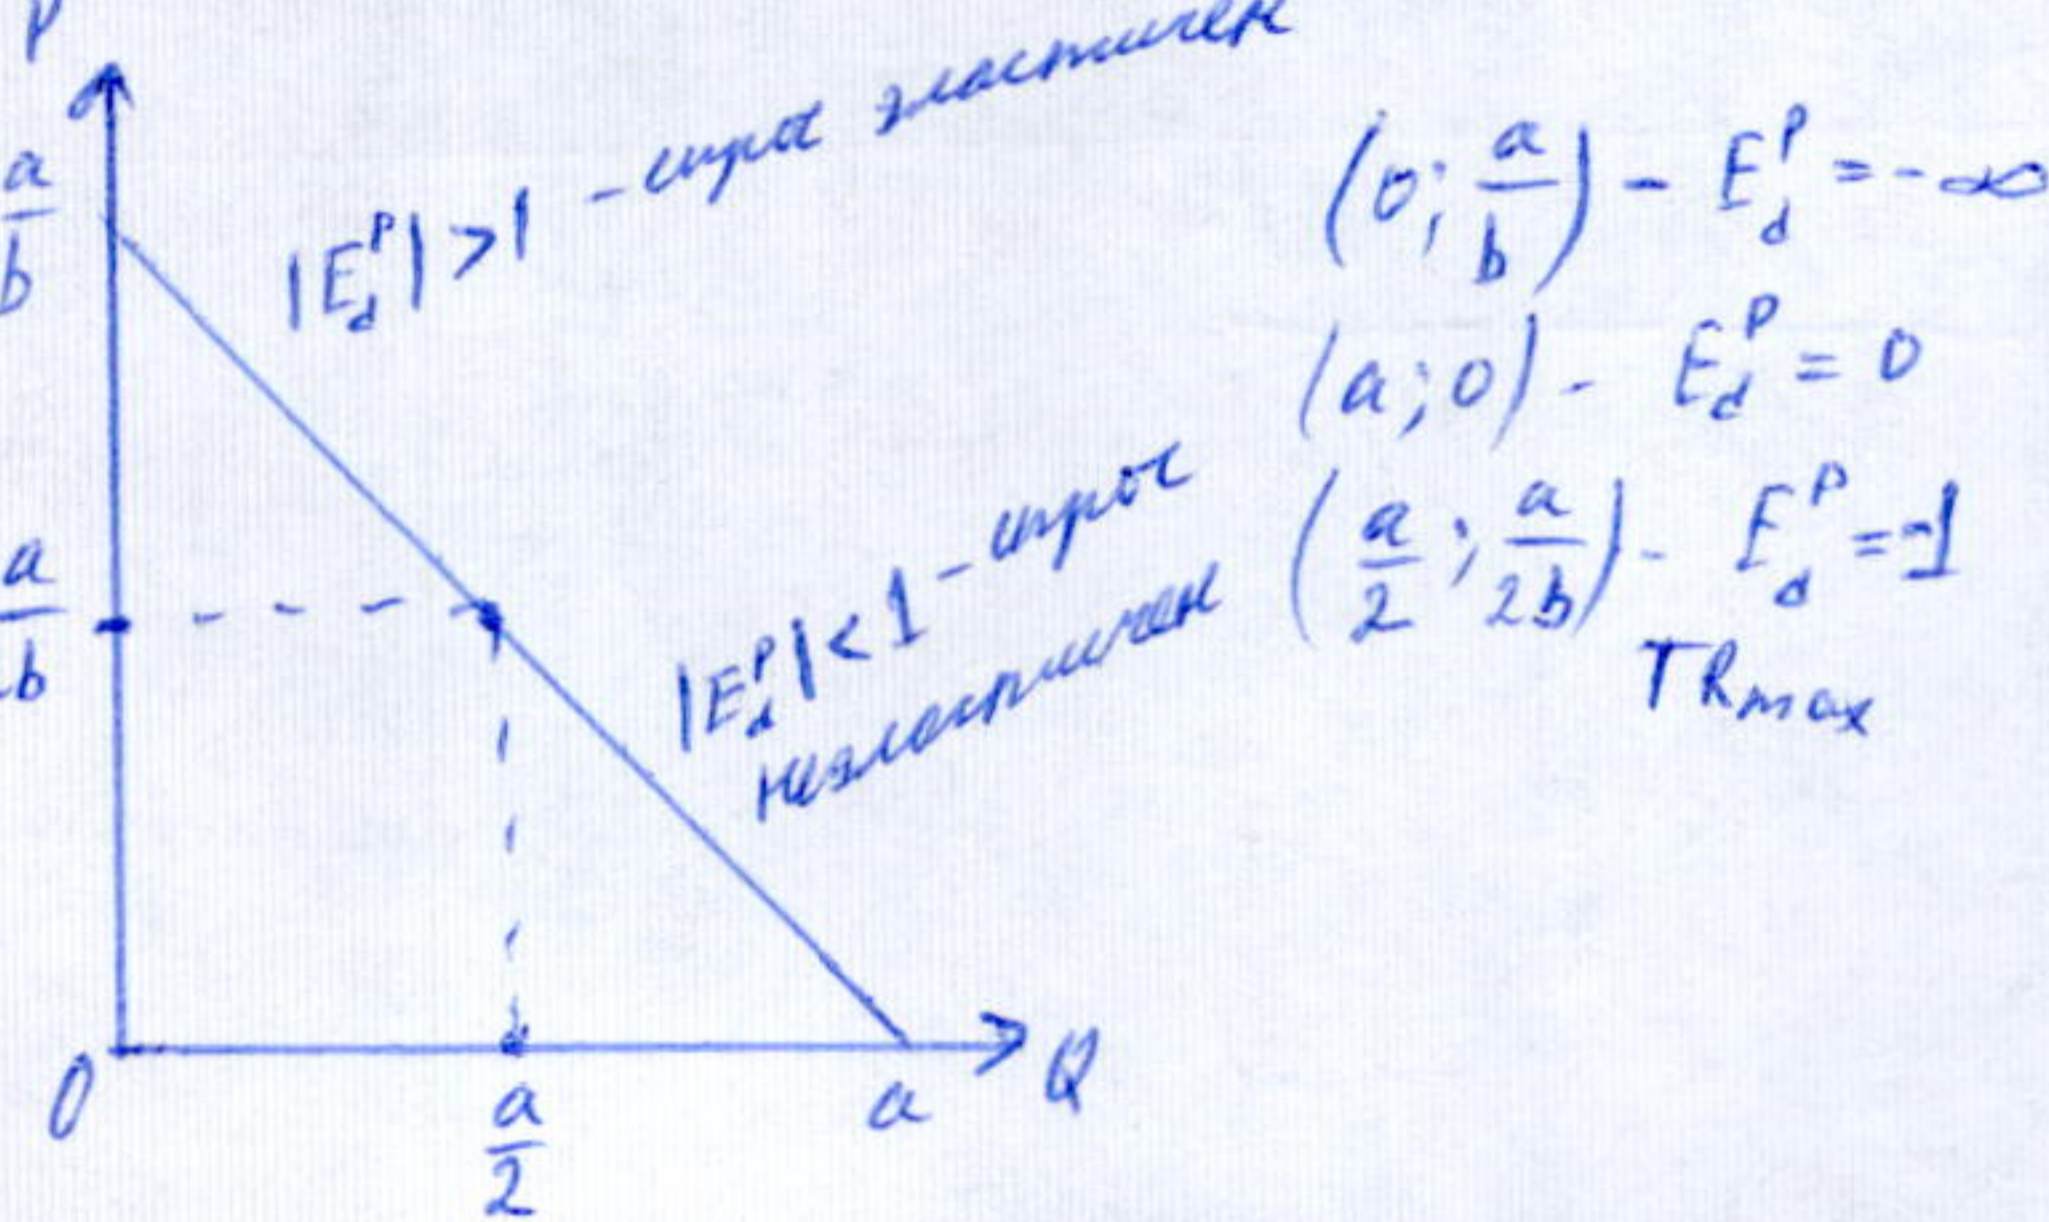 P
a/b
|E_d^P| > 1 - спрос эластичен
a/2b
|E_d^P| < 1 - спрос
неэластичен
0
a/2
a
Q
(0; a/b) - E_d^P = -∞
(a; 0) - E_d^P = 0
(a/2; a/2b) - E_d^P = -1
TRmax